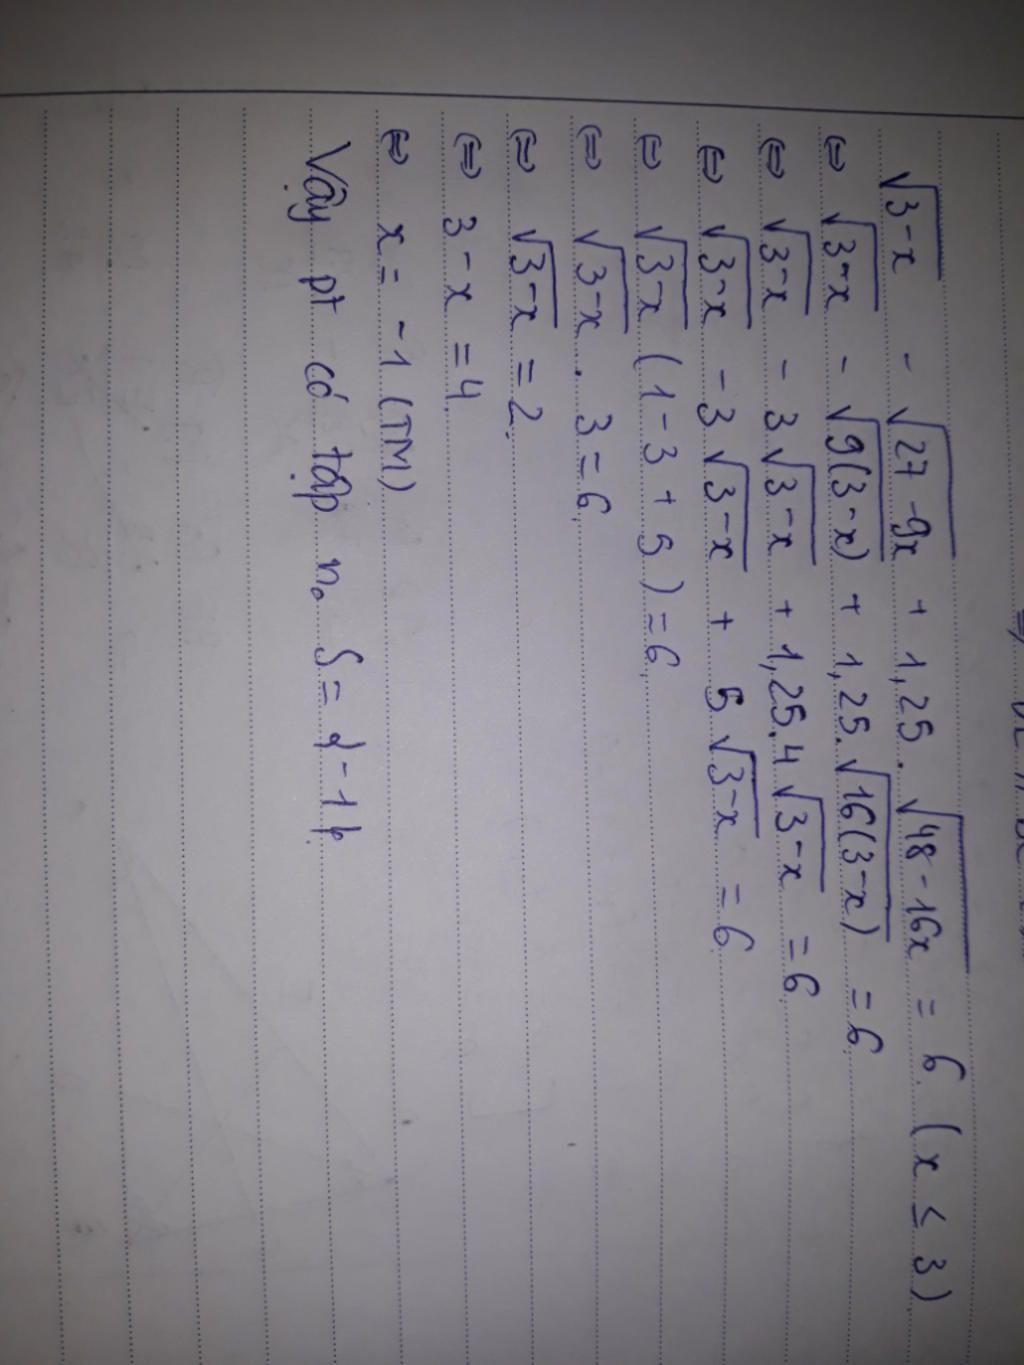 √3-x - √27-9x + 1,25.√48-16x = 6 (x ≤ 3)
⇔ √3-x - √9(3-x) + 1,25.√16(3-x) = 6
⇔ √3-x - 3√3-x + 1,25.4√3-x = 6
⇔ √3-x - 3√3-x + 5√3-x = 6
⇔ √3-x (1-3+5) = 6
⇔ √3-x . 3 = 6
⇔ √3-x = 2
⇔ 3-x = 4
⇔ x = -1 (TM)
Vậy pt có tập n₀ S = {-1}